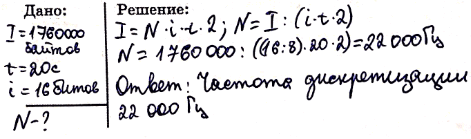 Дано:
I=1760000
байтов
t=20c
i=16битов
N-?
Решение:
I=N·i·t·2; N=I:(i·t·2)
N=1760000:((16:8)·20·2)=22000Гц
Ответ: Частота дискретизации
22 000 Гц